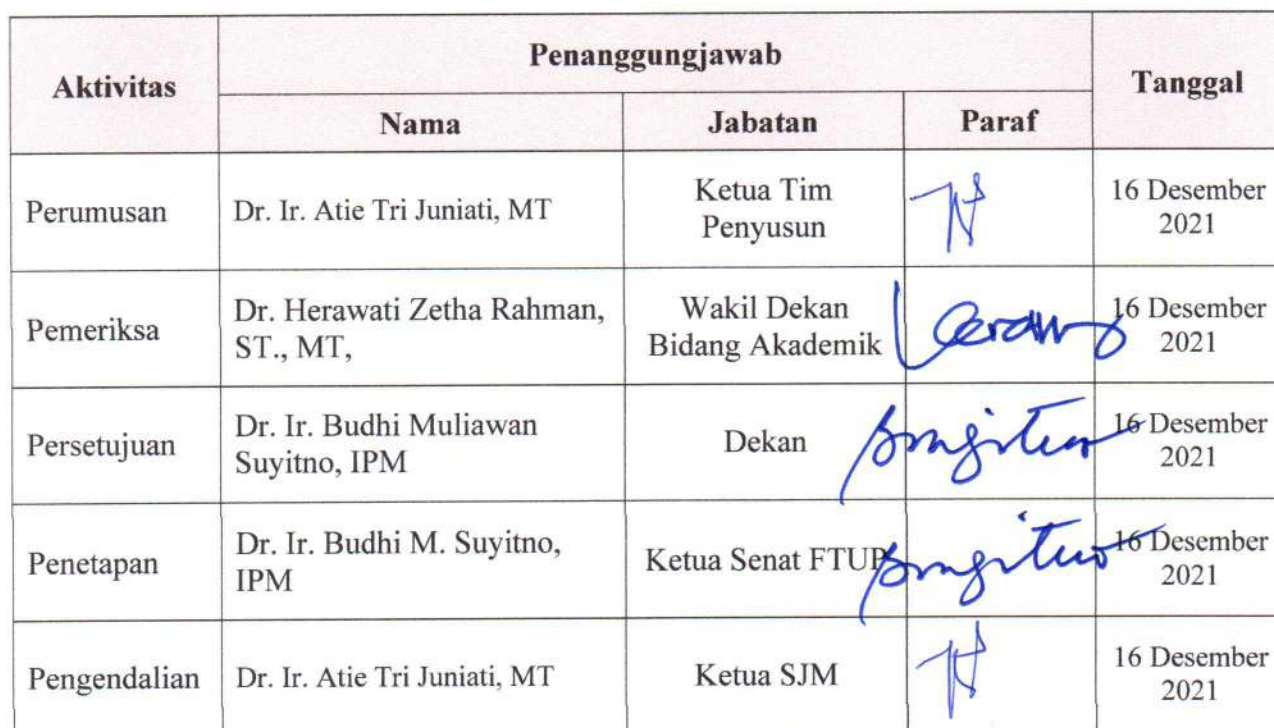 Aktivitas
Penanggungjawab
Tanggal
Nama
Jabatan
Paraf
Perumusan
Dr. Ir. Atie Tri Juniati, MT
Ketua Tim
Penyusun
16 Desember
2021
Pemeriksa
Dr. Herawati Zetha Rahman,
ST., MT,
Wakil Dekan
Bidang Akademik
16 Desember
2021
Persetujuan
Dr. Ir. Budhi Muliawan
Suyitno, IPM
Dekan
16 Desember
2021
Penetapan
Dr. Ir. Budhi M. Suyitno,
IPM
Ketua Senat FTUP
16 Desember
2021
Pengendalian
Dr. Ir. Atie Tri Juniati, MT
Ketua SJM
16 Desember
2021